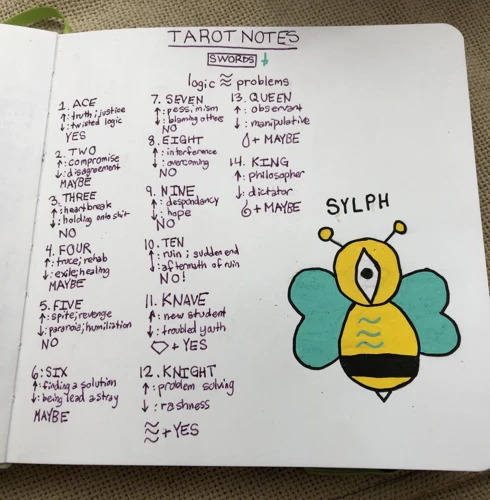 TAROT NOTES
SWORDS ↓
logic ≈ problems
1. ACE
↑: truth; justice
↓: twisted logic
YES
2. TWO
↑: compromise
↓: disagreement
MAYBE
3. THREE
↑: heartbreak
↓: holding onto shit
NO
4. FOUR
↑: truce; rehab
↓: exile; healing
MAYBE
5. FIVE
↑: spite; revenge
↓: paranoia; humiliation
NO
6: SIX
↑: finding a solution
↓: being lead astray
MAYBE
7. SEVEN
↑: pessimism
↓: blaming others
NO
8. EIGHT
↑: interference
↓: overcoming
NO
9. NINE
↑: despondancy
↓: hope
NO
10. TEN
↑: ruin; sudden end
↓: aftermath of ruin
NO!
11. KNAVE
↑: new student
↓: troubled youth
+ YES
12. KNIGHT
↑: problem solving
↓: rashness
≈ + YES
13. QUEEN
↑: observant
↓: manipulative
+ MAYBE
14. KING
↑: philosopher
↓: dictator
+ MAYBE
SYLPH